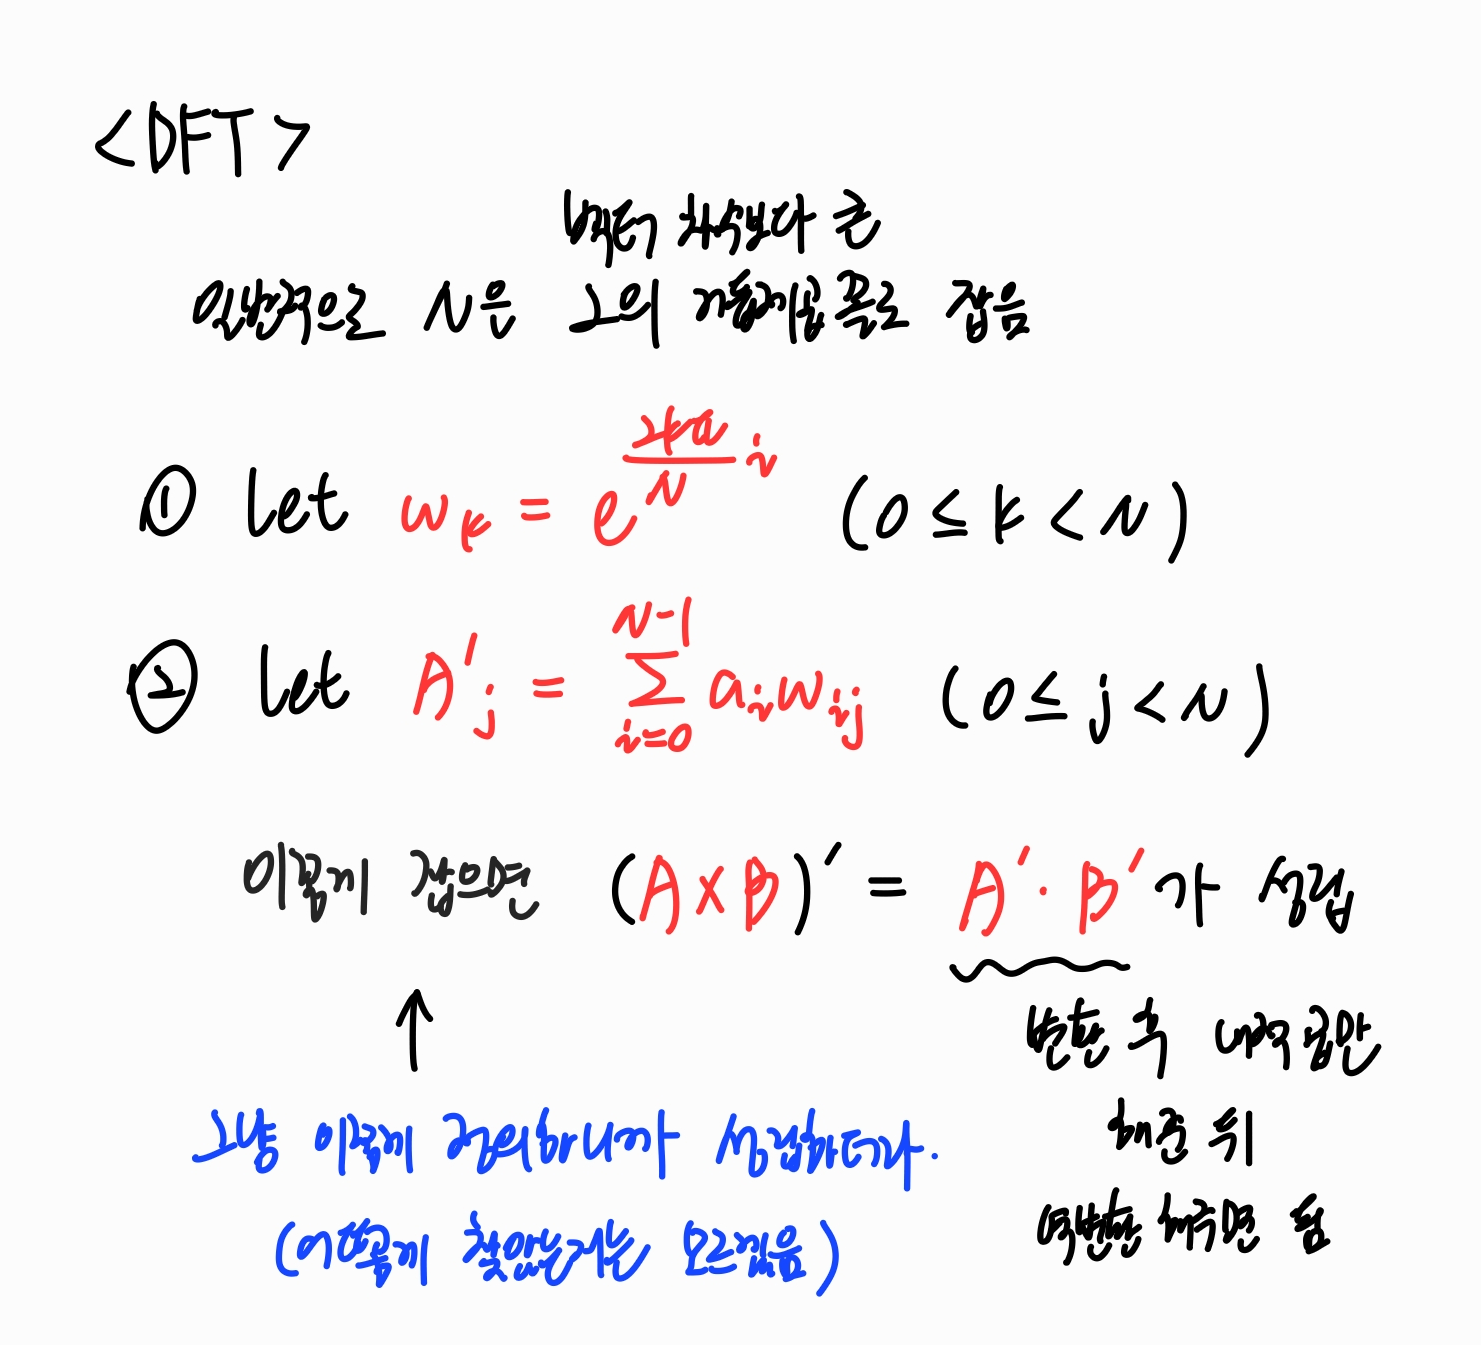 <DFT>
벡터 차수보다 큰
일반적으로 N은 2의 거듭제곱 꼴로 잡음
① let w_k = e^{\frac{2kπ}{N} i} (0 ≤ k < N)
② let A'_j = \sum_{i=0}^{N-1} a_i w_{ij} (0 ≤ j < N)
이렇게 잡으면 (A × B)' = A' · B' 가 성립
변환 후 내적곱만
해준 뒤
역변환 해주면 됨
↑
그냥 이렇게 정의하니까 성립하더라.
(어떻게 찾았는지는 모르겠음)